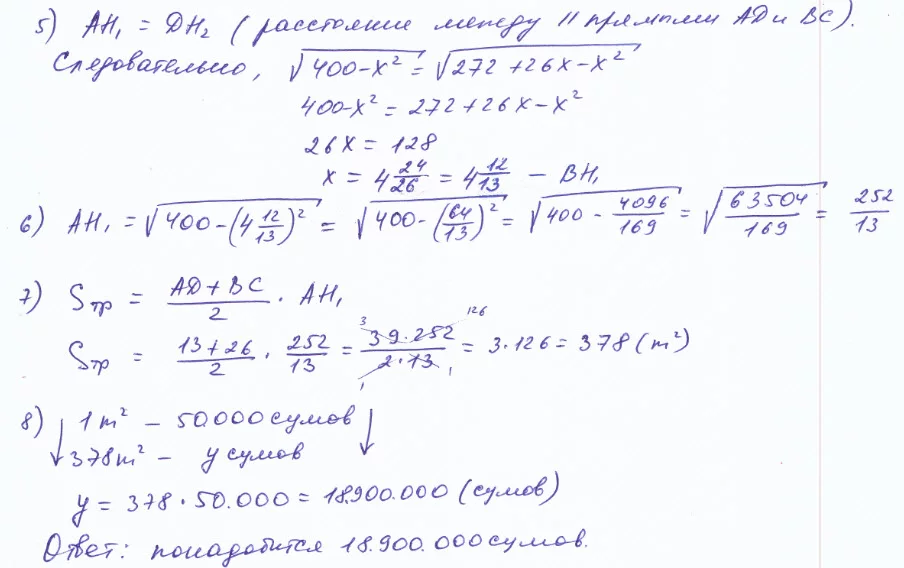 5) AH₁ = DH₂ (расстояние между || прямыми AD и BC).
Следовательно, √(400-x²) = √(272+26x-x²)
400-x² = 272+26x-x²
26x = 128
x = 4 24/26 = 4 12/13 - BH₁
6) AH₁ = √(400-(4 12/13)²) = √(400-(64/13)²) = √(400 - 4096/169) = √(63504/169) = 252/13
7) Sтр = (AD+BC)/2 · AH₁
Sтр = (13+26)/2 · 252/13 = (39·252)/(2·13) = 3·126 = 378 (m²)
3 126 1 1
8) ↓ 1 m² - 50.000 сумов ↓
378 m² - y сумов
y = 378 · 50.000 = 18.900.000 (сумов)
Ответ: понадобится 18.900.000 сумов.